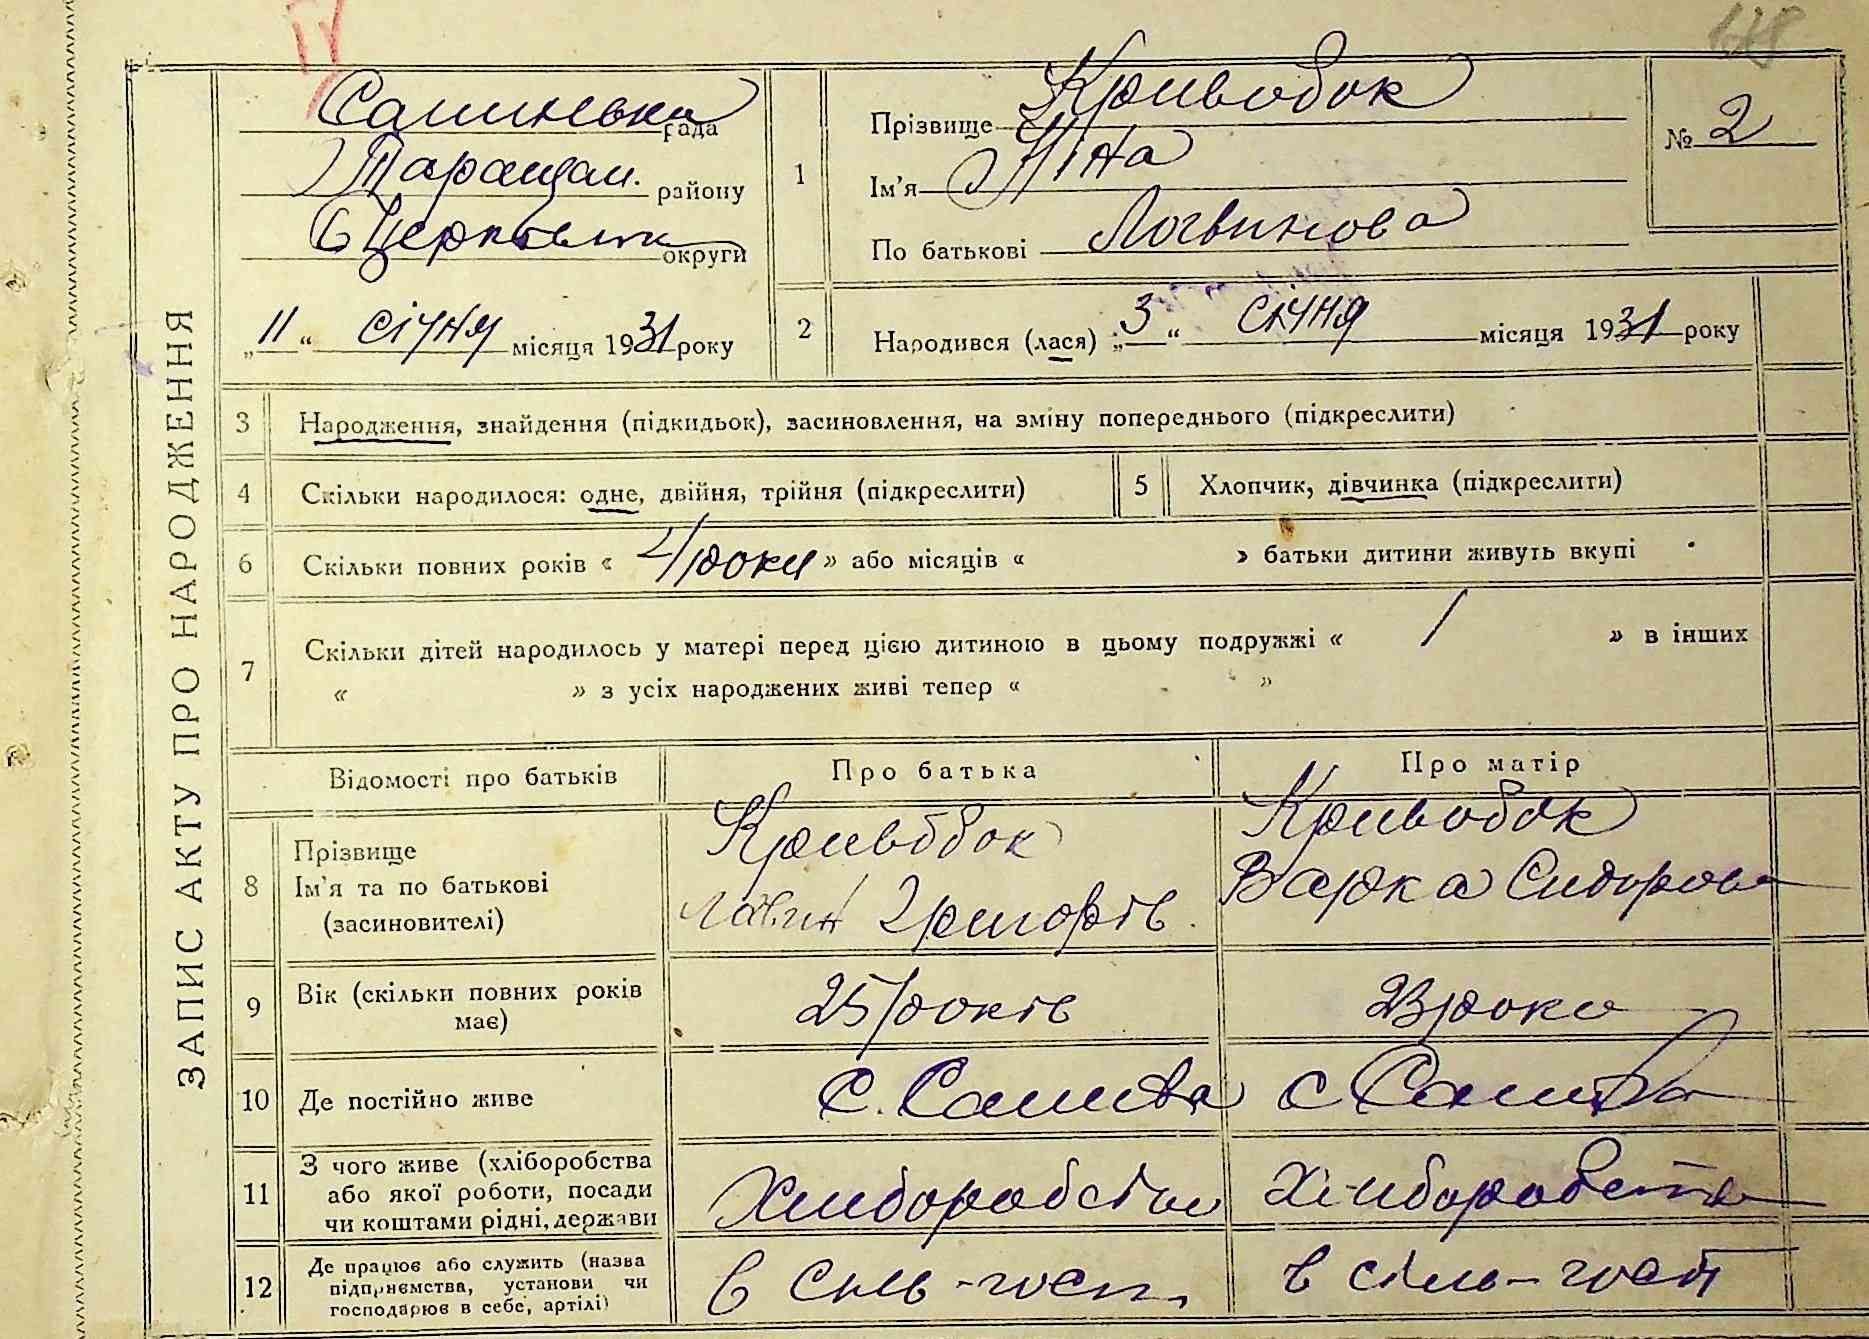 IV
128
ЗАПИС АКТУ ПРО НАРОДЖЕННЯ
Салиівська рада
Таращан. району
Б Церківськ округи
„11“ січня місяця 1931 року
1
Прізвище Кривобок
Ім'я Ніна
По батькові Логвинова
№ 2
2
Народився (лася) „3“ січня місяця 1931 року
3 Народження, знайдення (підкидьок), засиновлення, на зміну попереднього (підкреслити)
4 Скільки народилося: одне, двійня, трійня (підкреслити)
5 Хлопчик, дівчинка (підкреслити)
6 Скільки повних років « 4 роки » або місяців « » батьки дитини живуть вкупі
7 Скільки дітей народилось у матері перед цією дитиною в цьому подружжі « 1 » в інших
« » з усіх народжених живі тепер « »
Відомості про батьків Про батька Про матір
8
Прізвище
Ім'я та по батькові
(засиновителі)
Кривобок
Логвин Григорів
Кривобок
Варка Сидорова
9
Вік (скільки повних років
має)
25 років
23 роки
10 Де постійно живе
11
З чого живе (хліборобства
або якої роботи, посади
чи коштами рідні, держави
Хліборобства
Хліборобства
12
Де працює або служить (назва
підприємства, установи чи
господарює в себе, артілі)
в сіль-госп.
в сіль-госп